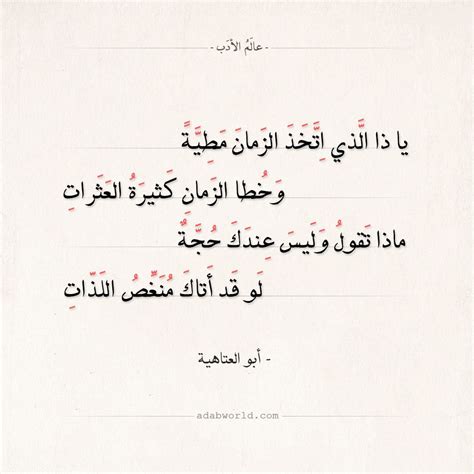 - عالَمُ الأدَب -
يا ذا الَّذي اِتَّخَذَ الزَمانَ مَطِيَّةً
وَخُطا الزَمانِ كَثيرَةُ العَثَراتِ
ماذا تَقولُ وَلَيسَ عِندَكَ حُجَّةٌ
لَو قَد أَتاكَ مُنَغِّصُ اللَذّاتِ
- أبو العتاهية
adabworld.com